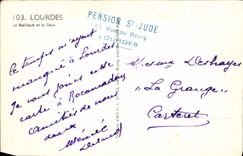 103. LOURDES
La Basilique et le Gave.
PENSION St-JUDE
Rue de Bourg
LOURDES
Le temps m'ayant
manqué à Lourdes
je vous joins cette
carte à Rocamadour
Amitiés de nous
deux
Madame Deshayes
"La Grange"
Carteret